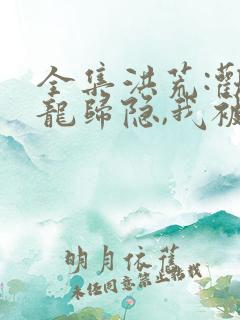 全集洪荒:灌
龍歸隐,我被
明月依舊
未经同意禁止转载